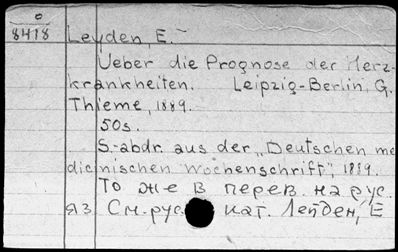 0
8418
Leyden, E.
Ueber die Prognose der Herz-
krankheiten. Leipzig-Berlin, G.
Thieme, 1889.
50s.
S.-abdr. aus der „Deutschen me
dicinischen Wochenschrift", 1889.
То же в перев. на рус.
яз. См. рус. кат. Лейден, Е